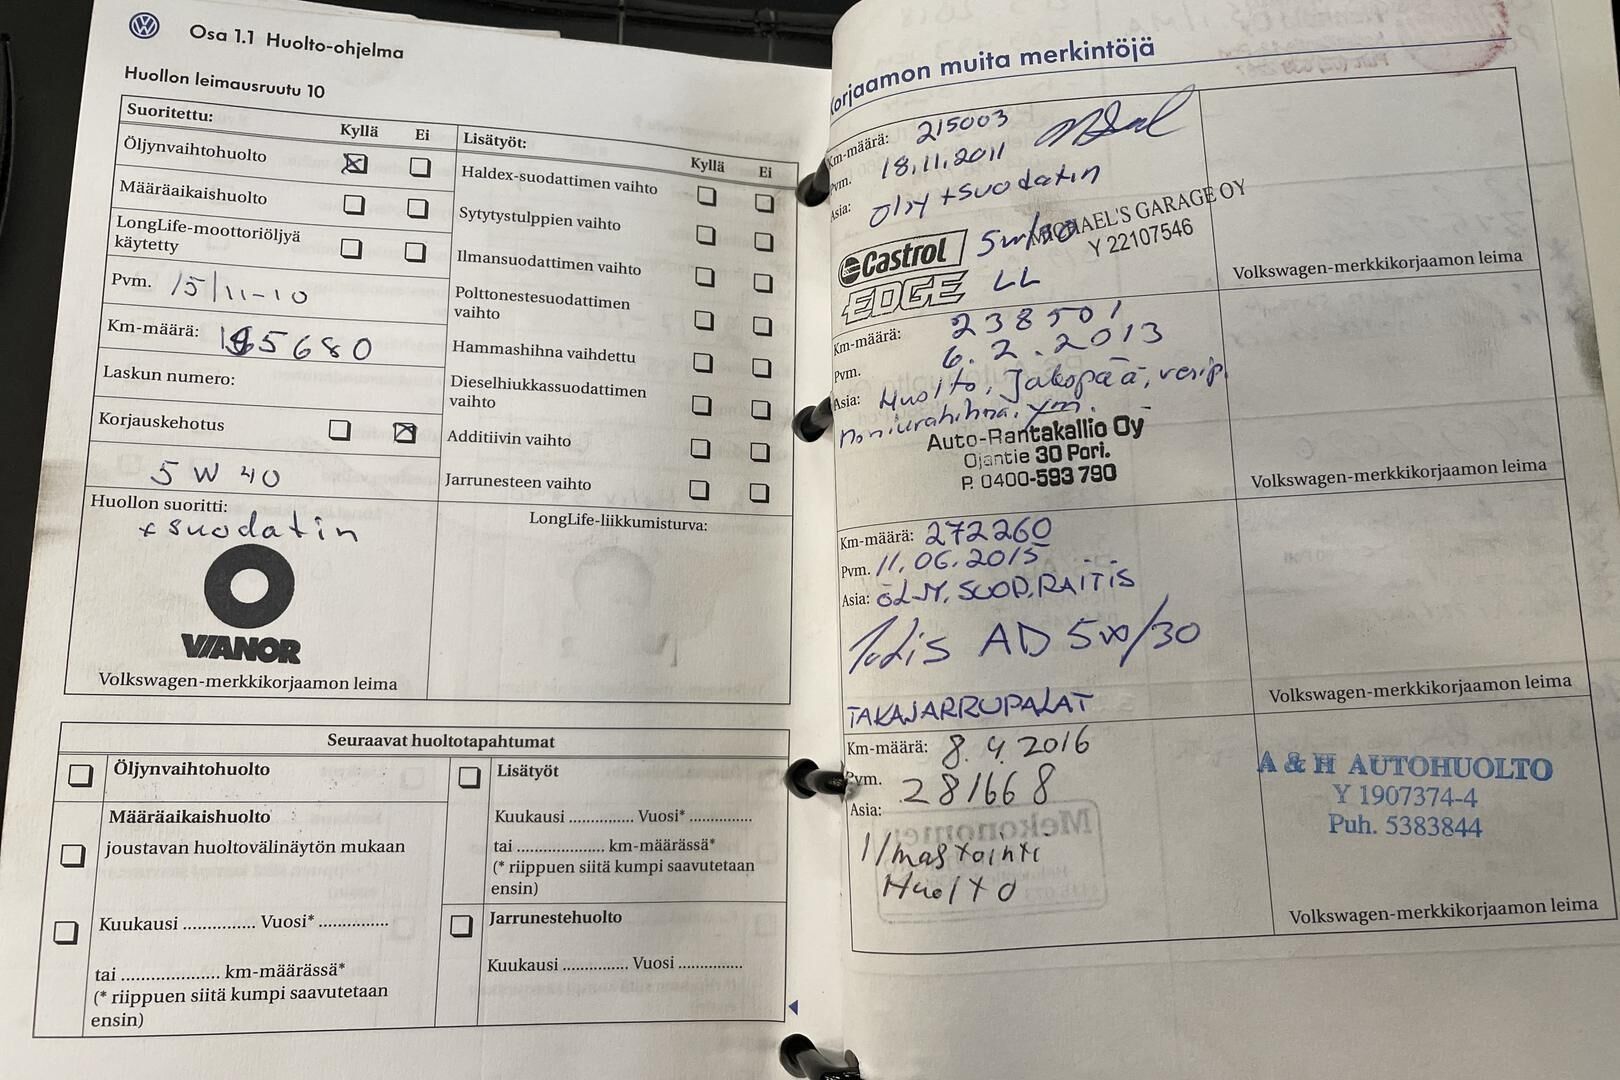 Osa 1.1 Huolto-ohjelma
Huollon leimausruutu 10
Suoritettu:
Kyllä Ei
Öljynvaihtohuolto
Määräaikaishuolto
LongLife-moottoriöljyä
käytetty
Pvm. 15/11-10
Km-määrä: 195680
Laskun numero:
Korjauskehotus
5 W 40
Huollon suoritti:
+ suodatin
VIANOR
Volkswagen-merkkikorjaamon leima
Lisätyöt:
Kyllä Ei
Haldex-suodattimen vaihto
Sytytystulppien vaihto
Ilmansuodattimen vaihto
Polttonestesuodattimen
vaihto
Hammashihna vaihdettu
Dieselhiukkassuodattimen
vaihto
Additiivin vaihto
Jarrunesteen vaihto
LongLife-liikkumisturva:
Seuraavat huoltotapahtumat
Öljynvaihtohuolto
Määräaikaishuolto
joustavan huoltovälinäytön mukaan
Kuukausi ............... Vuosi* ..............
tai .................... km-määrässä*
(* riippuen siitä kumpi saavutetaan
ensin)
Lisätyöt
Kuukausi .............. Vuosi* .............
tai .................... km-määrässä*
(* riippuen siitä kumpi saavutetaan
ensin)
Jarrunestehuolto
Kuukausi .............. Vuosi ..............
Korjaamon muita merkintöjä
Km-määrä: 215003
Pvm. 18.11.2011
Asia: Öljy + suodatin
Castrol
EDGE
5w/30
LL
MICHAEL'S GARAGE OY
Y 22107546
Volkswagen-merkkikorjaamon leima
Km-määrä: 238501
Pvm. 6.2.2013
Asia: Huolto, Jakopää, vesip.
moniurahihna. ym.
Auto-Rantakallio Oy
Ojantie 30 Pori.
P. 0400-593 790
Volkswagen-merkkikorjaamon leima
Km-määrä: 272260
Pvm. 11.06.2015
Asia: ÖLJY, SUOD, RAITIS
AD 5w/30
TAKAJARRUPALAT
Volkswagen-merkkikorjaamon leima
Km-määrä: 8.4.2016
Pvm. 281668
Asia:
Ilmastointi
Huolto
A & H AUTOHUOLTO
Y 1907374-4
Puh. 5383844
Volkswagen-merkkikorjaamon leima